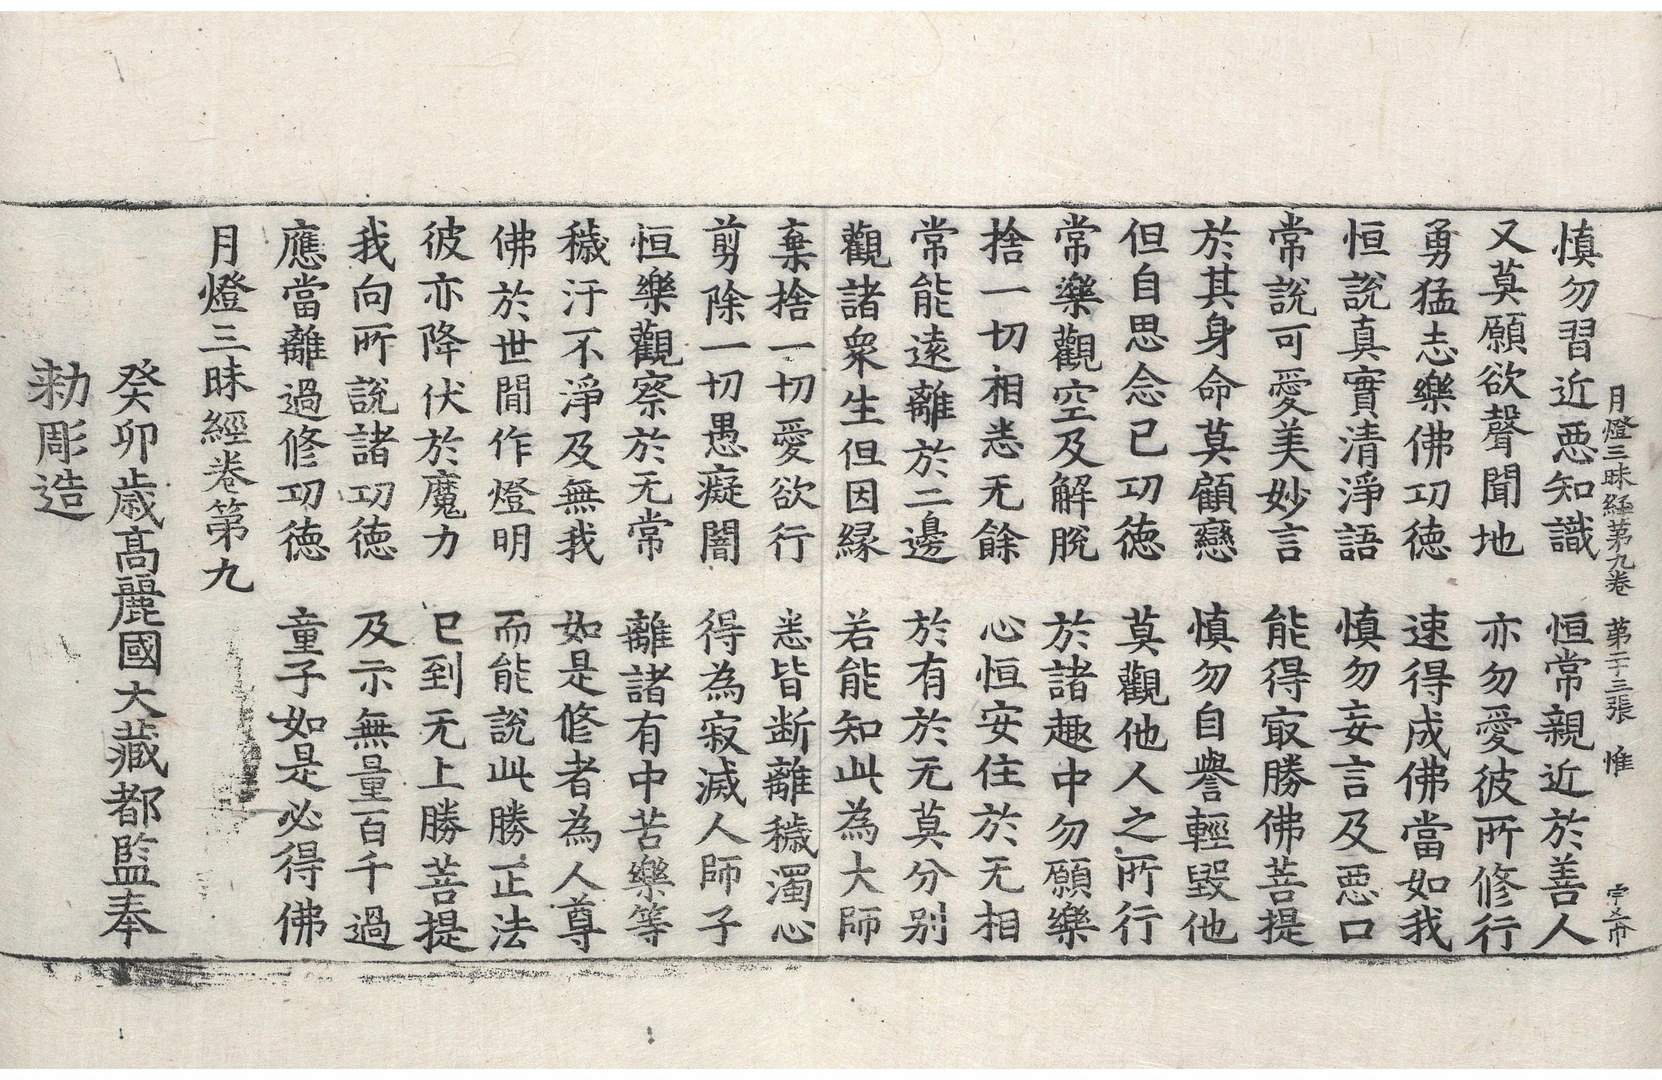 月燈三昧經第九卷 第二十三張 惟
慎勿習近惡知識 恒常親近於善人
又莫願欲聲聞地 亦勿愛彼所修行
勇猛志樂佛功德 速得成佛當如我
恒說真實清淨語 慎勿妄言及惡口
常說可愛美妙言 能得㝡勝佛菩提
於其身命莫顧戀 慎勿自譽輕毀他
但自思念己功德 莫觀他人之所行
常樂觀空及解脫 於諸趣中勿願樂
捨一切相悉无餘 心恒安住於无相
常能遠離於二邊 於有於无莫分別
觀諸衆生但因緣 若能知此為大師
棄捨一切愛欲行 悉皆断離穢濁心
剪除一切愚癡闇 得為寂滅人師子
恒樂觀察於无常 離諸有中苦樂等
穢汙不淨及無我 如是修者為人尊
佛於世間作燈明 而能說此勝正法
彼亦降伏於魔力 已到无上勝菩提
我向所說諸功德 及示無量百千過
應當離過修功德 童子如是必得佛
月燈三昧經卷第九
癸卯歳高麗國大藏都監奉
勑彫造